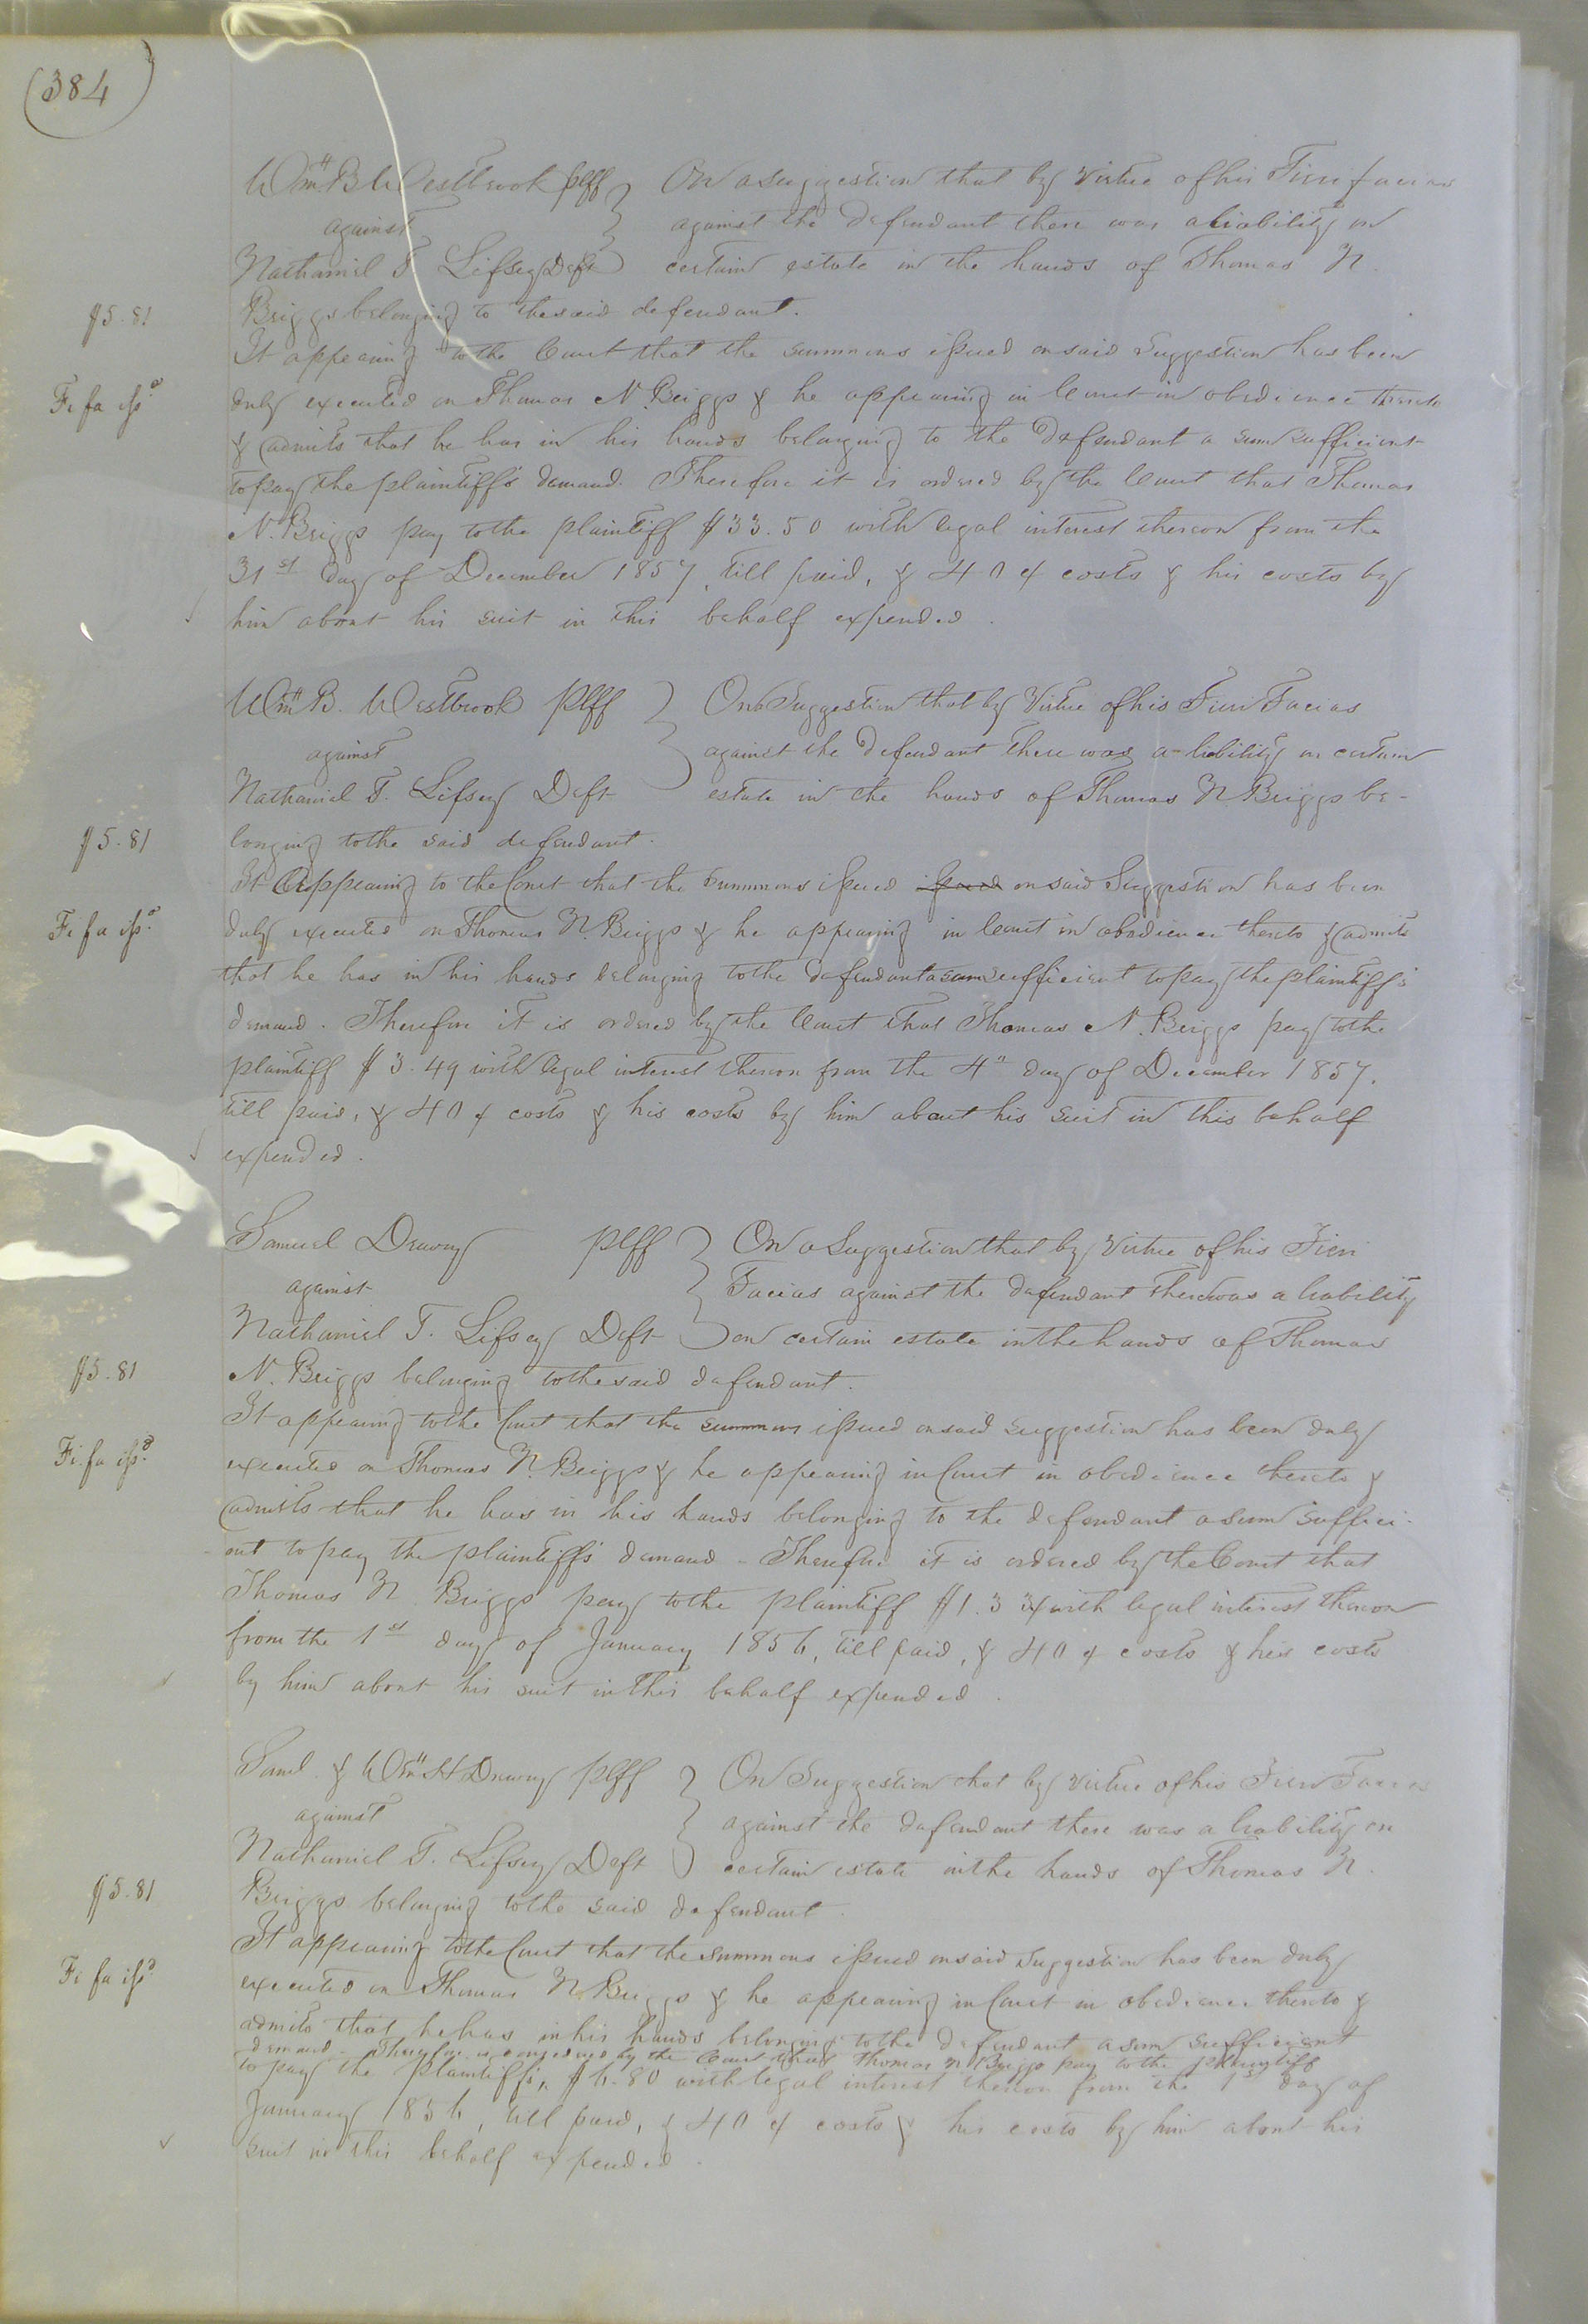 (384)
Wm B Westbrook plff } On a Suggestion that by Virtue of his Fieri facias
against } against the defendant there was a liability on
Nathaniel T Lifsey Deft } certain estate in the hands of Thomas N.
$5.81 Briggs belonging to the said defendant.
It appearing to the Court that the summons issued on said Suggestion has been
Fi fa issd duly executed on Thomas N. Briggs & he appearing in Court in obedience thereto
& admits that he has in his hands belonging to the defendant a sum sufficient
to pay the plaintiff's demand. Therefore it is ordered by the Court that Thomas
N. Briggs pay to the plaintiff $33.50 with legal interest thereon from the
31st day of December 1857, till paid, & 40 ¢ costs & his costs by
him about his suit in this behalf expended.
Wm B. Westbrook Plff } On a Suggestion that by Virtue of his Fieri Facias
against } against the defendant there was a liability on certain
Nathaniel T. Lifsey Deft } estate in the hands of Thomas N Briggs be-
$5.81 longing to the said defendant.
It Appearing to the Court that the Summons issued issued on said Suggestion has been
Fi fa issd duly executed on Thomas N. Briggs & he appearing in Court in obedience thereto & admits
that he has in his hands belonging to the defendant a sum sufficient to pay the plaintiff's
demand. Therefore it is ordered by the Court that Thomas N. Briggs pay to the
plaintiff $3.49 with legal interest thereon from the 4" day of December 1857,
till paid, & 40 ¢ costs & his costs by him about his suit in this behalf
expended.
Samuel Drewry plff } On a Suggestion that by Virtue of his Fieri
against } Facias against the defendant there was a liability
Nathaniel T. Lifsey Deft } on certain estate in the hands of Thomas
$5.81 N. Briggs belonging to the said defendant.
It appearing to the Court that the summons issued on said suggestion has been duly
Fi. fa issd executed on Thomas N. Briggs & he appearing in Court in obedience thereto &
admits that he has in his hands belonging to the defendant a sum suffici-
ent to pay the plaintiff's demand - Therefore it is ordered by the Court that
Thomas N. Briggs pay to the plaintiff with legal interest thereon
from the 1st day of January 1856, till paid, & 40 ¢ costs & his costs
by him about his suit in this behalf expended.
Saml. & Wm H Drewry plff } On Suggestion that by virtue of his Fieri Facias
against } against the defendant there was a liability on
Nathaniel T. Lifsey Deft } certain estate in the hands of Thomas N.
$5.81 Briggs belonging to the said defendant.
It appearing to the Court that the summons issued on said Suggestion has been duly
Fi fa issd executed on Thomas N. Briggs & he appearing in Court in obedience thereto &
admits that he has in his hands belonging to the defendant a sum sufficient
demand - Therefore is considered by the Court that Thomas N Briggs pay to the plaintiff
to pay the plaintiff's $6.80 with legal interest thereon from the 1st day of
January 1856, till paid, & 40 ¢ costs & his costs by him about his
suit in this behalf expended.